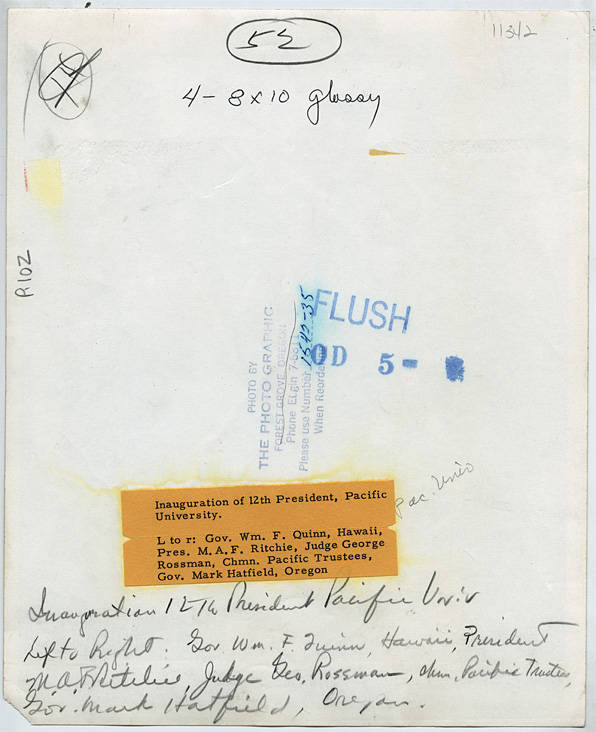 52
11342
4 - 8x10 glossy
P102
FLUSH
OD 5-
PHOTO BY
THE PHOTO GRAPHIC
FOREST GROVE, OREGON
Phone ELgin 7-
Please use Number 1542-35
When Reorde
Pac. Univ
Inauguration of 12th President, Pacific
University.
L to r: Gov. Wm. F. Quinn, Hawaii,
Pres. M.A.F. Ritchie, Judge George
Rossman, Chmn. Pacific Trustees,
Gov. Mark Hatfield, Oregon
Inauguration 12th President Pacific Univ
Left to Right: Gov. Wm. F. Quinn, Hawaii, President
M.A.F. Ritchie, Judge Geo. Rossman, Chm. Pacific Trustees,
Gov. Mark Hatfield, Oregon.